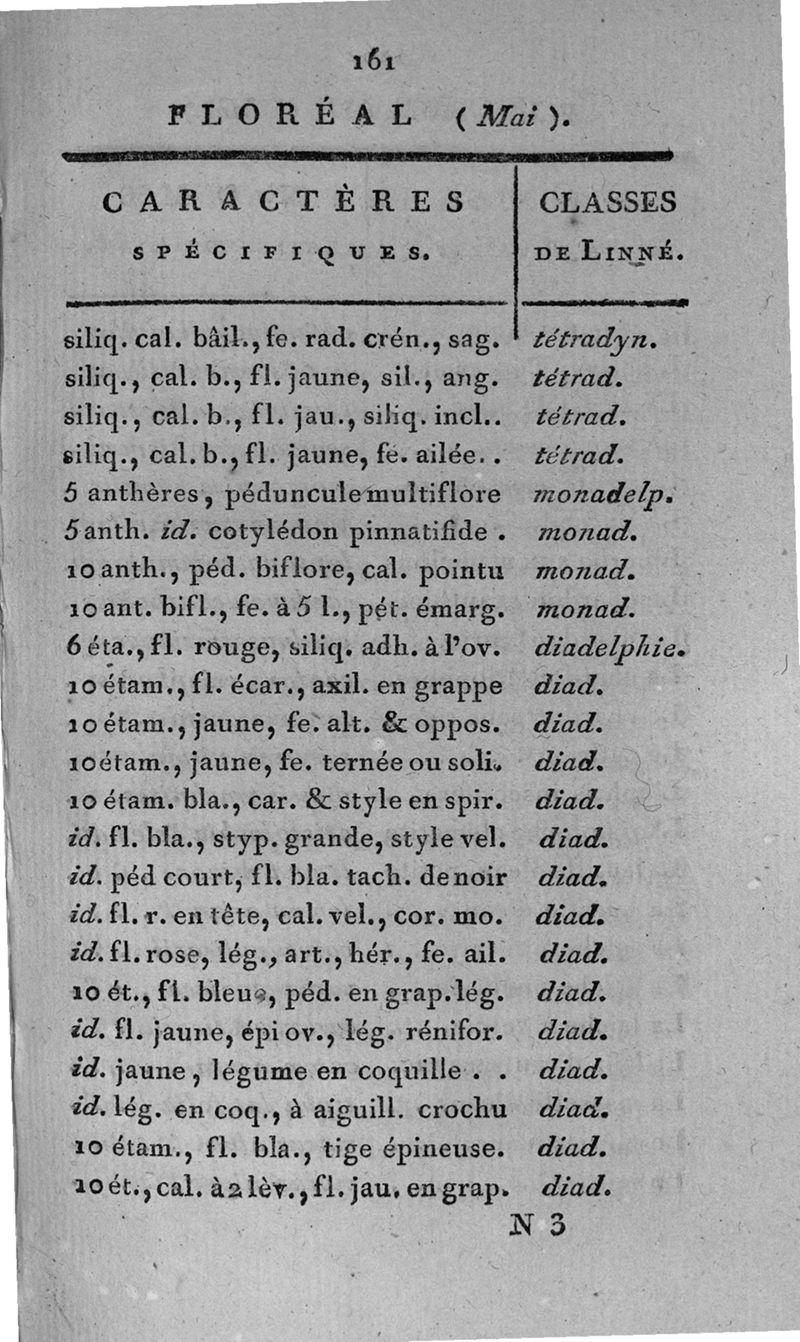 161
FLORÉAL (Mai).
CARACTÈRES
SPÉCIFIQUES.
CLASSES
DE LINNÉ.
siliq. cal. bâil., fe. rad. crén., sag. tétradyn.
siliq., cal. b., fl. jaune, sil., ang. tétrad.
siliq., cal. b., fl. jau., siliq. incl.. tétrad.
siliq., cal. b., fl. jaune, fe. ailée. . tétrad.
5 anthères, péduncule multiflore monadelp.
5 anth. id. cotylédon pinnatifide . monad.
10 anth., péd. biflore, cal. pointu monad.
10 ant. bifl., fe. à 5 l., pét. émarg. monad.
6 éta., fl. rouge, siliq. adh. à l'ov. diadelphie.
10 étam., fl. écar., axil. en grappe diad.
10 étam., jaune, fe. alt. & oppos. diad.
10 étam., jaune, fe. ternée ou soli. diad.
10 étam. bla., car. & style en spir. diad.
id. fl. bla., styp. grande, style vel. diad.
id. péd court, fl. bla. tach. de noir diad.
id. fl. r. en tête, cal. vel., cor. mo. diad.
id. fl. rose, lég., art., hér., fe. ail. diad.
10 ét., fl. bleue, péd. en grap. lég. diad.
id. fl. jaune, épi ov., lég. rénifor. diad.
id. jaune, légume en coquille . . diad.
id. lég. en coq., à aiguill. crochu diad.
10 étam., fl. bla., tige épineuse. diad.
10 ét., cal. à 2 lèv., fl. jau. en grap. diad.
N 3